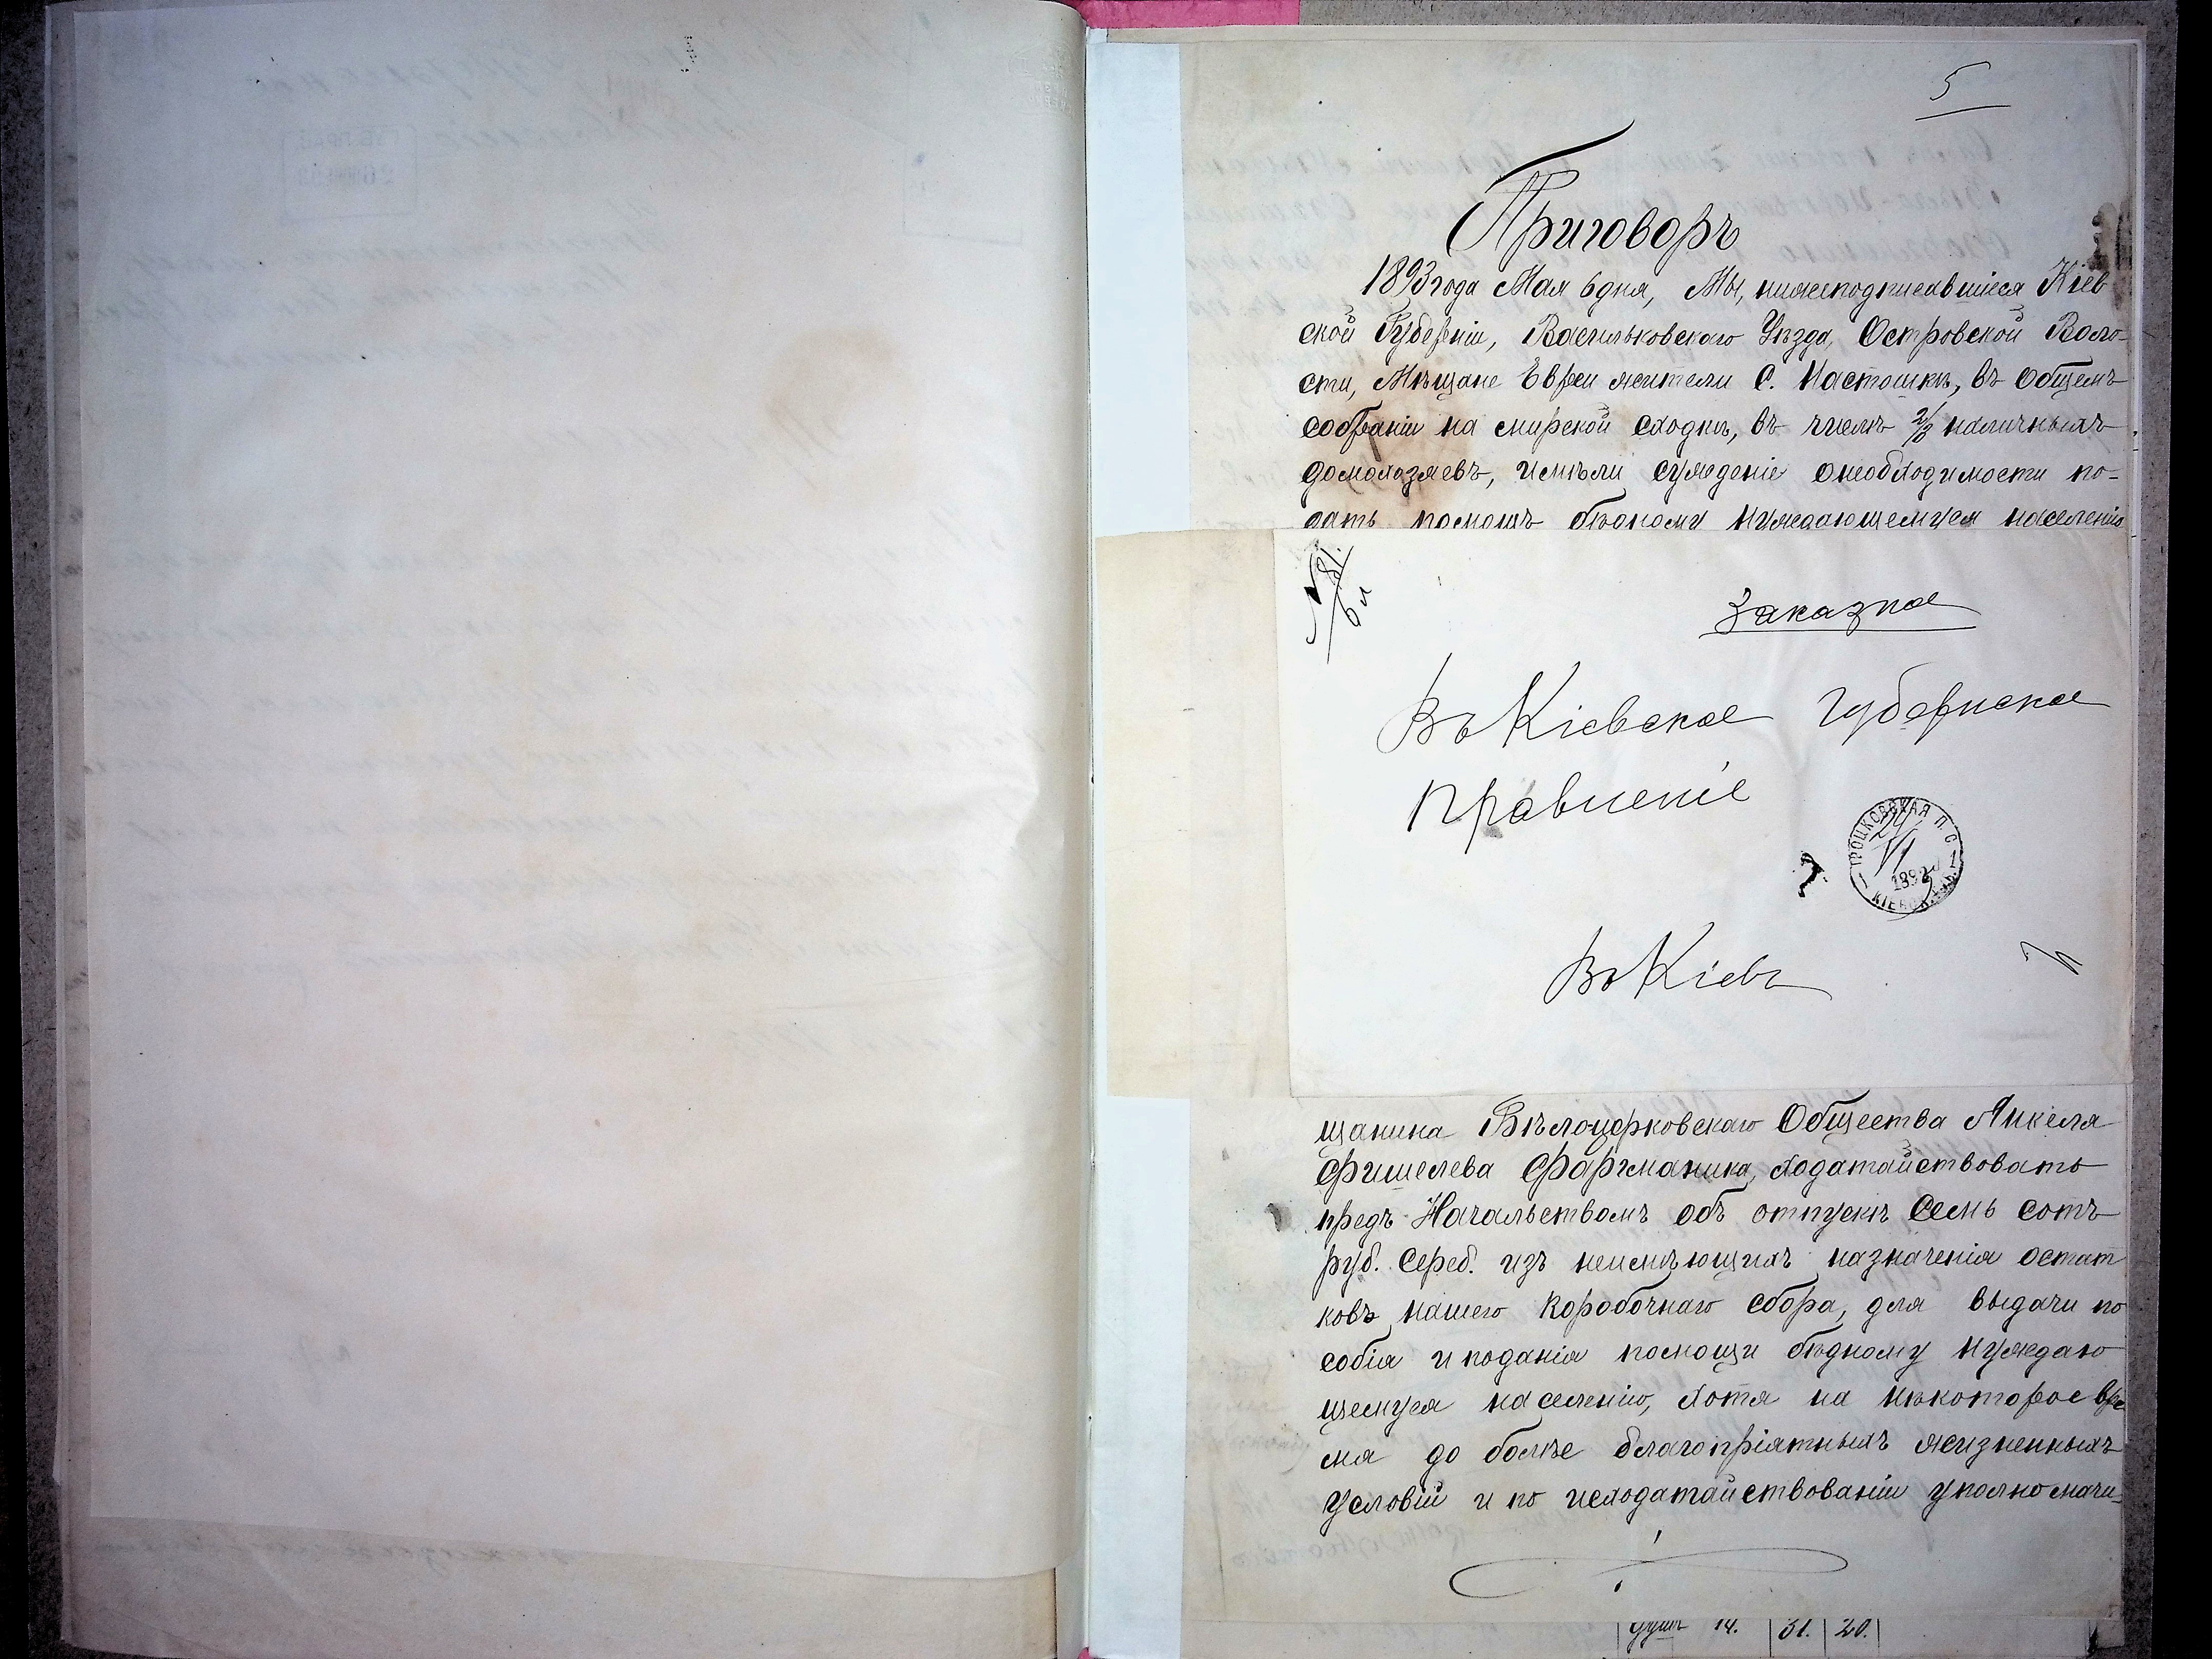 5
Приговоръ
1893 года Мая 6 дня, Мы, нижеподписавшіеся Кіев
ской Губерніи, Васильковскаго Уѣзда, Островской Воло-
сти, Мѣщане Евреи жители С. Насташки, въ общемъ
собраніи на мирской сходкѣ, въ числѣ 2/3 наличныхъ
домохозяевъ, имѣли сужденіе о необходимости по-
дать помощь бѣдному нуждающемуся населенію
Заказное
Въ Кіевское Губернское
Правленіе
ТРОЦКОВСКАЯ П. С.
1892
КІЕВСК.
Въ Кіевъ
щанина Бѣлоцерковскаго Общества Анкеля
Фишелева Фаргманика, ходатайствовать
предъ Начальствомъ объ отпускѣ Семь сотъ
руб. Сереб. изъ неимѣющихъ назначенія остат
ковъ нашего Коробочнаго сбора, для выдачи по
собія и поданія помощи бѣдному нуждаю
щемуся населенію, хотя на нѣкоторое вре
мя до болѣе благопріятныхъ жизненныхъ
условій и по исходатайствованіи уполномочи-
душъ 14. 31. 20.